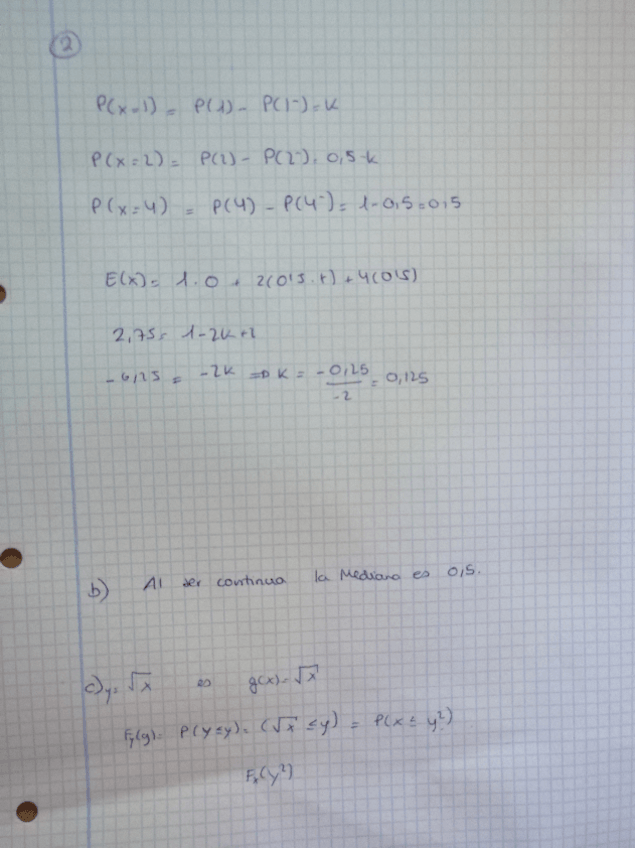 2
P(x=1) = P(1) - P(1⁻) = k
P(x=2) = P(2) - P(2⁻) = 0,5-k
P(x=4) = P(4) - P(4⁻) = 1-0,5 = 0,5
E(x) = 1.0 + 2(0'5 . t) + 4(0'5)
2,75 = 1-2k+2
-0,25 = -2k => k = -0,25/-2 = 0,125
b) Al ser continua la Mediana es 0,5.
c) y = √x es g(x) = √x
Fy(y) = P(y≤y) = (√x ≤ y) = P(x ≤ y²)
Fx(y²)